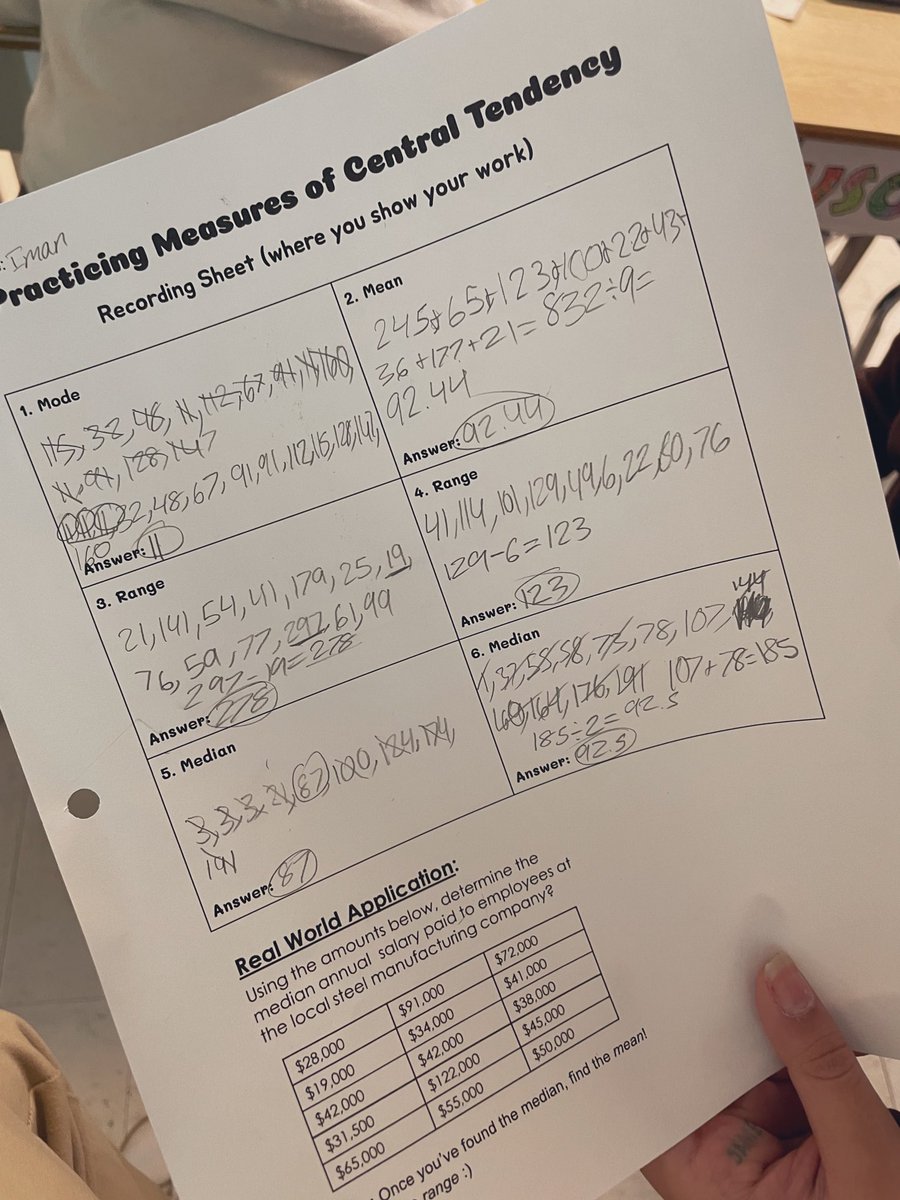 : Iman
Practicing Measures of Central Tendency
Recording Sheet (where you show your work)
1. Mode
115, 32, 48, 11, 112, 67, 91, 11, 160,
11, 91, 128, 147
11, 11, 11, 32, 48, 67, 91, 91, 112, 115, 128, 147,
160
Answer: 11
2. Mean
245+65+123+100+22+43+
36+177+21=832÷9=
92.44
Answer: 92.44
3. Range
21, 141, 54, 41, 179, 25, 19,
76, 59, 77, 297, 61, 99
297-19=278
Answer: 278
4. Range
41, 114, 101, 129, 49, 6, 22, 80, 76
129-6=123
Answer: 123
5. Median
3, 3, 3, 21, 87, 100, 184, 174,
191
Answer: 87
6. Median
144
1, 37, 58, 58, 75, 78, 107,
160, 164, 176, 191 107+78=185
185÷2=92.5
Answer: 92.5
Real World Application:
Using the amounts below, determine the
median annual salary paid to employees at
the local steel manufacturing company?
$28,000 $91,000 $72,000
$19,000 $34,000 $41,000
$42,000 $42,000 $38,000
$31,500 $122,000 $45,000
$65,000 $55,000 $50,000
Once you've found the median, find the mean!
range :)